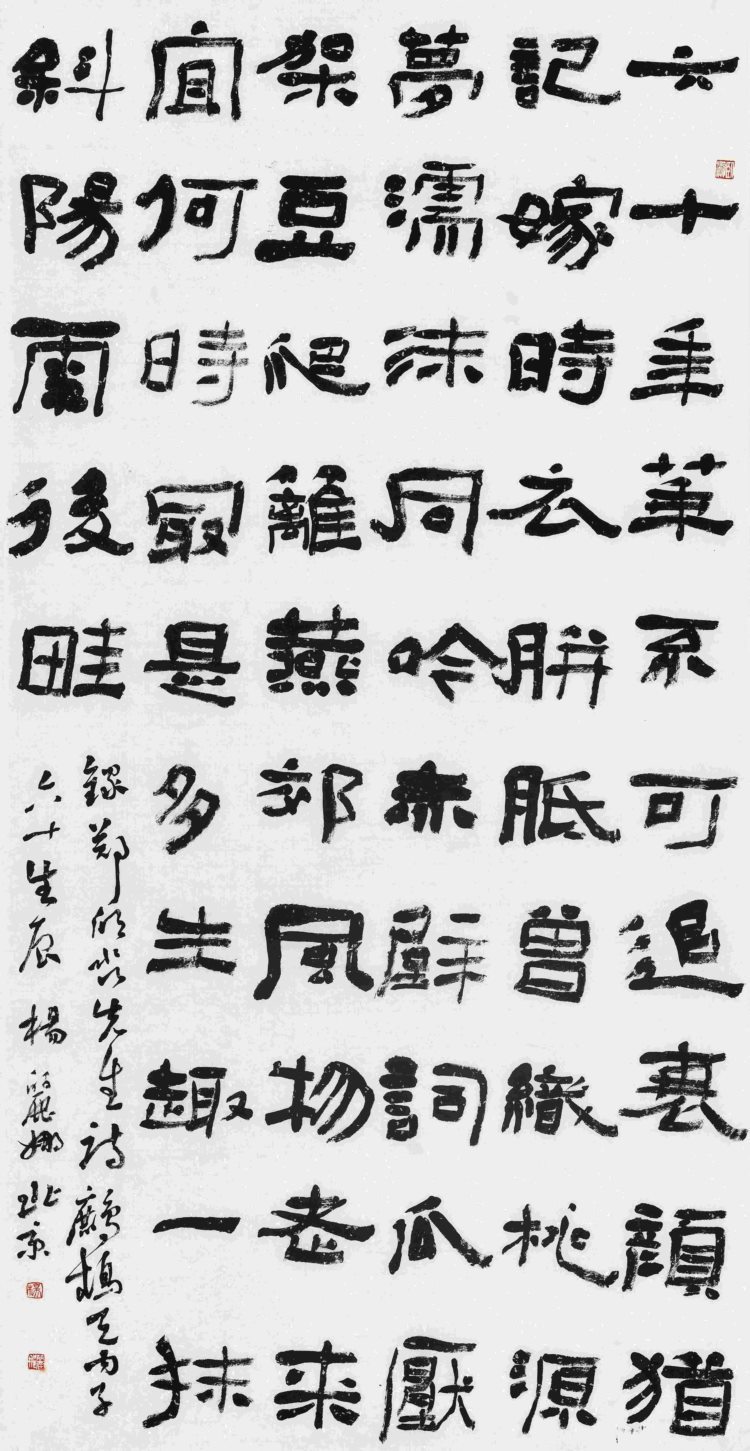 六十年華不可追衰顏猶
記嫁時衣胼胝曾織桃源
夢濡沫同吟赤壁詞瓜厭
架豆爬籬燕郊風物老来
宜何時最是多生趣一抹
斜陽雨後畦
錄鄭欣淼先生詩鷓鴣天内子
六十生辰 楊麗娜 北京